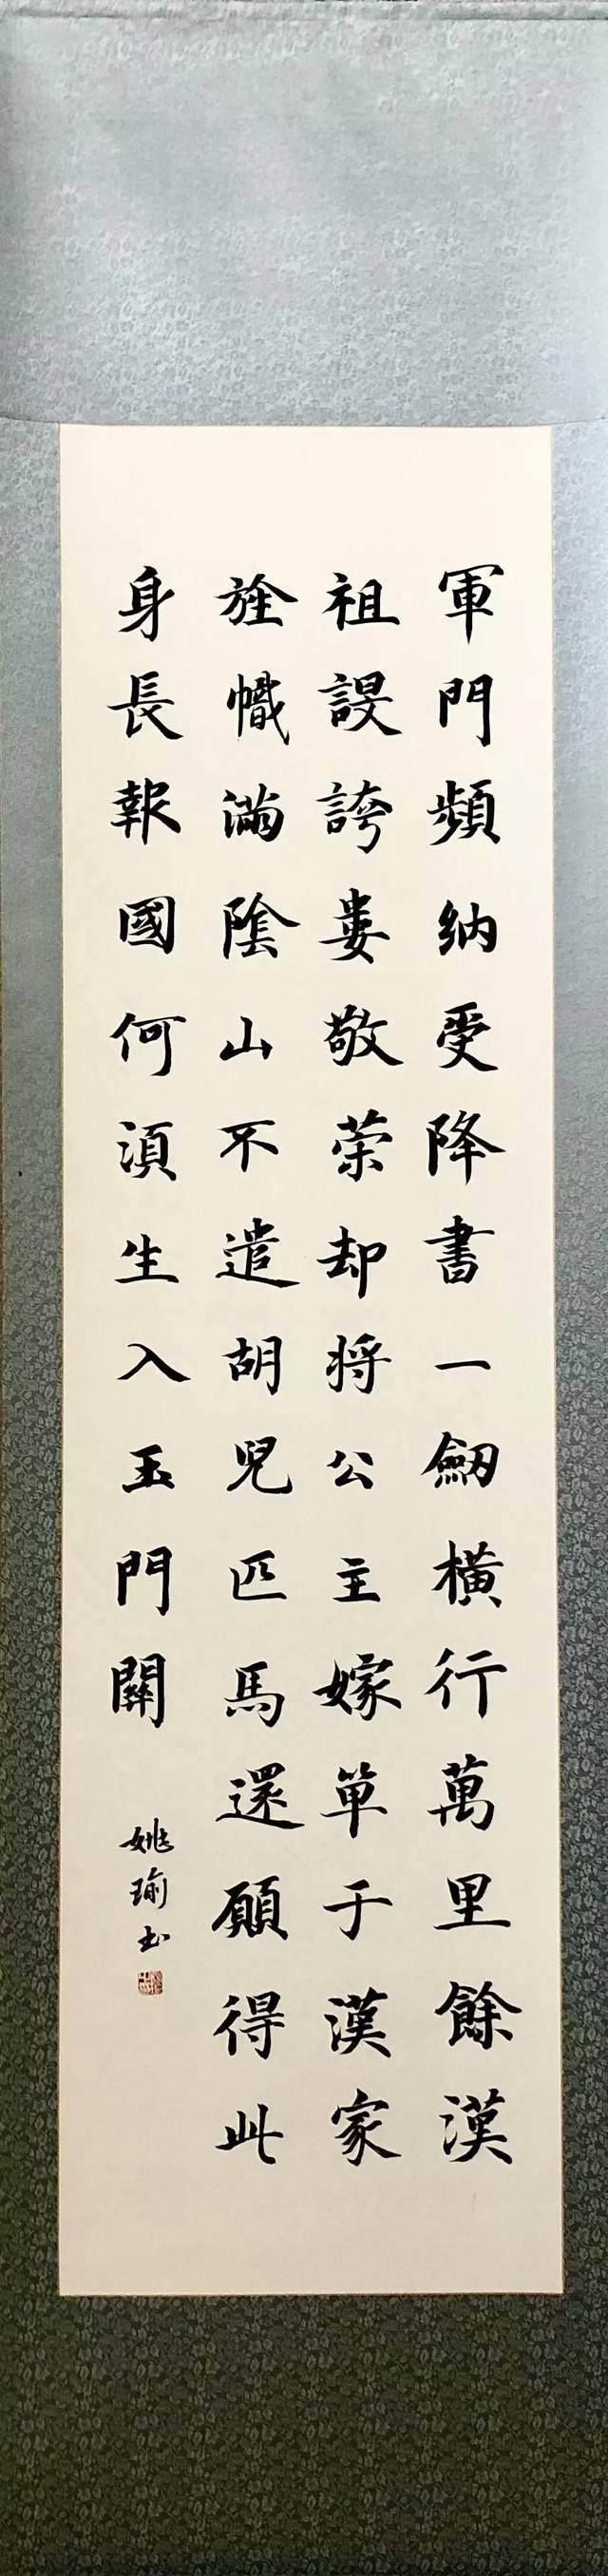 軍門頻納受降書一劒橫行萬里餘漢
祖誤誇婁敬榮却将公主嫁單于漢家
旌幟滿陰山不遣胡兒匹馬還願得此
身長報國何湏生入玉門關
姚瑜书